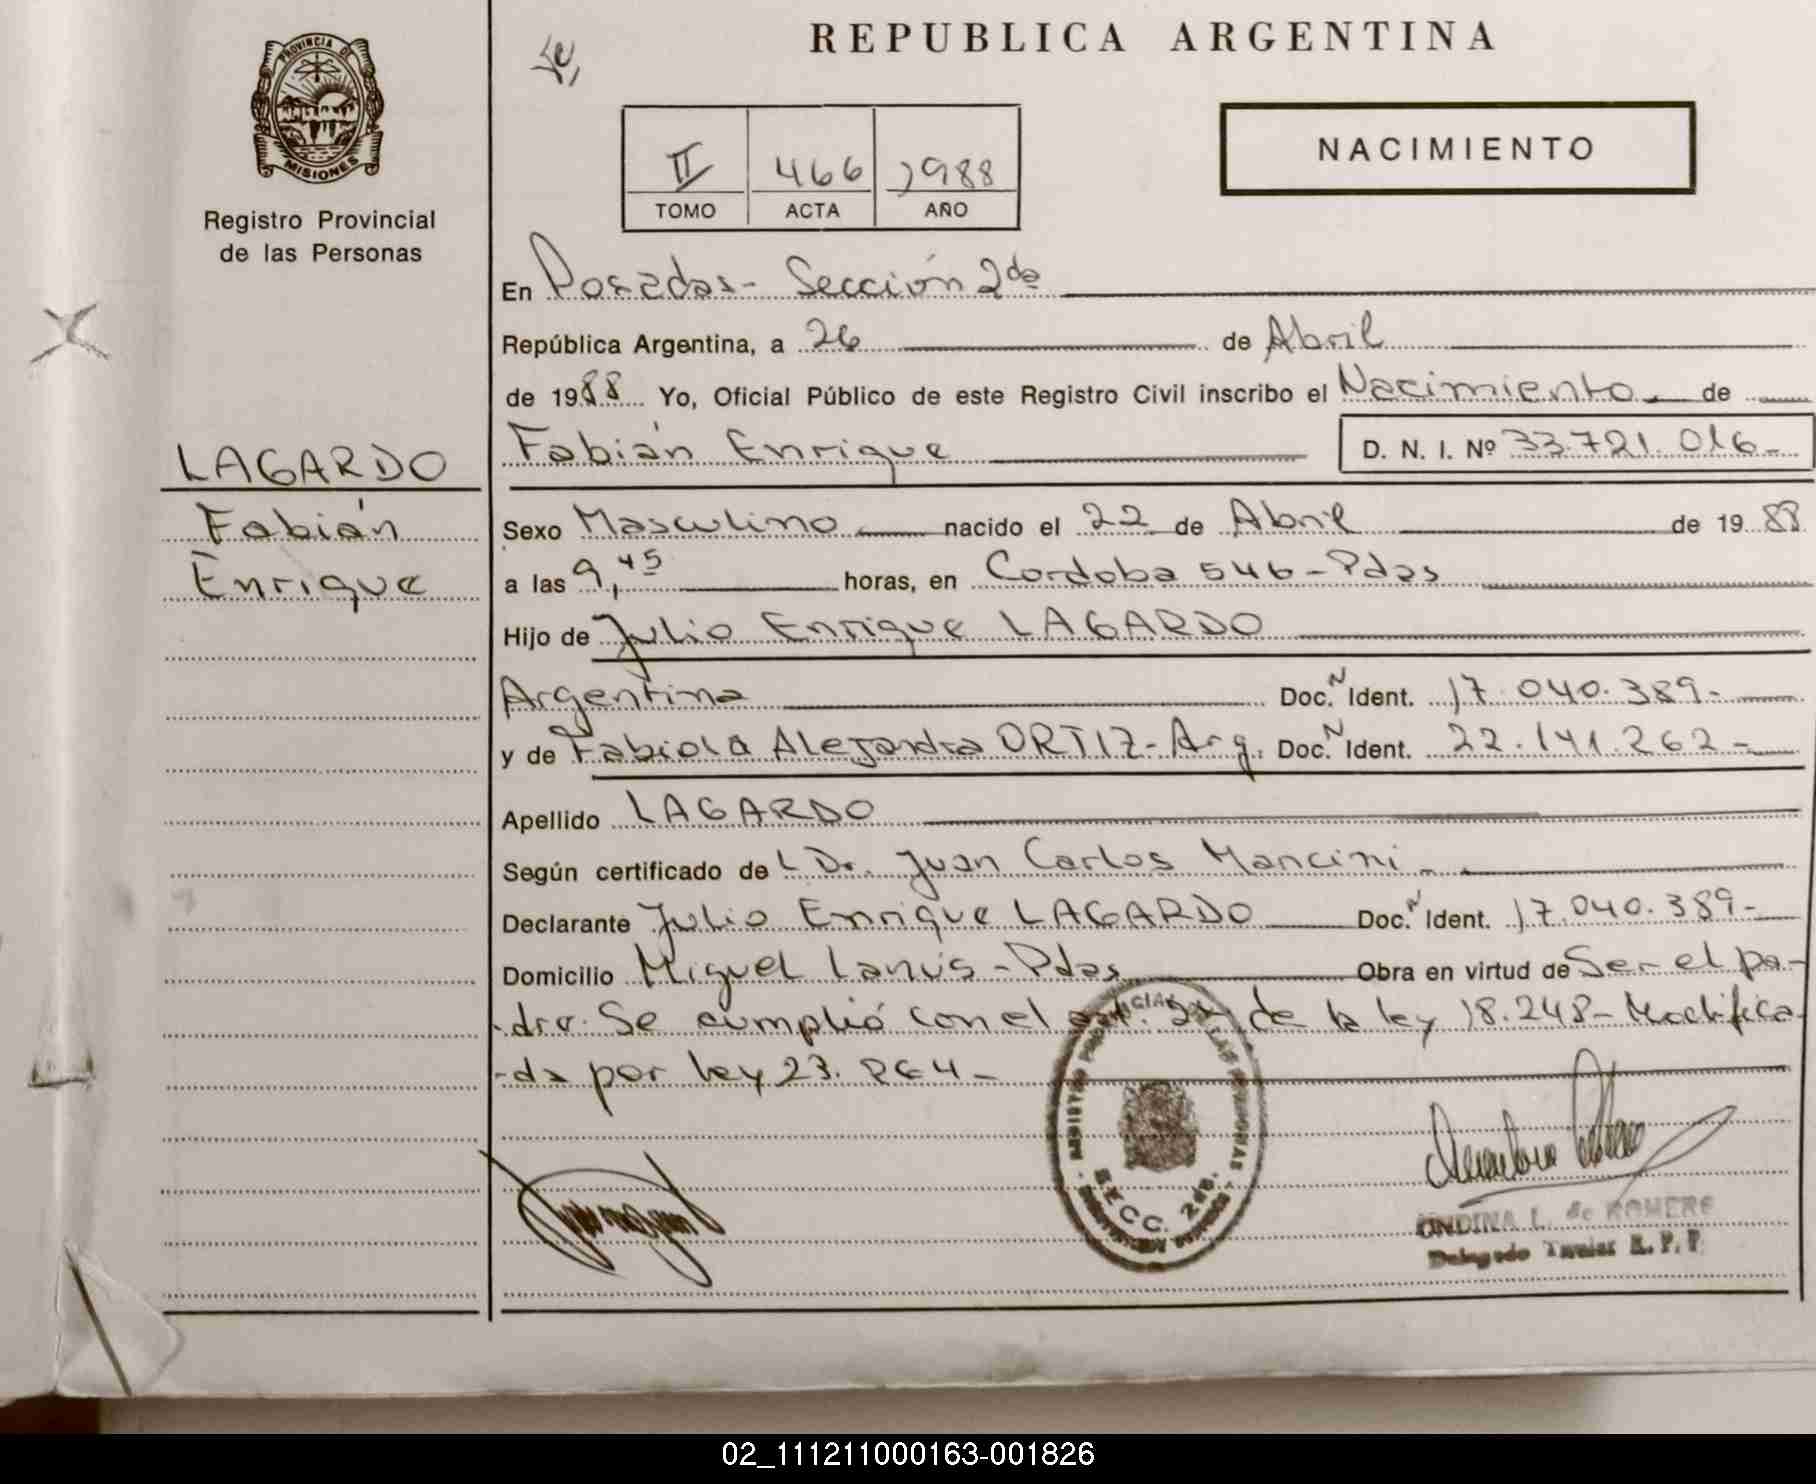 REPUBLICA ARGENTINA
PROVINCIA DE
MISIONES
Registro Provincial
de las Personas
II 466 1988
TOMO ACTA AÑO
NACIMIENTO
En Posadas- Sección 2da
República Argentina, a 26 de Abril
de 1988 Yo, Oficial Público de este Registro Civil inscribo el Nacimiento de
Fabián Enrique D. N. I. Nº 33.721.016-
LAGARDO
Fabián
Enrique
Sexo Masculino nacido el 22 de Abril de 1988
a las 9,45 horas, en Cordoba 546-Pdas
Hijo de Julio Enrique LAGARDO
Argentina Doc. N Ident. 17.040.389-
y de Fabiola Alejandra ORTIZ-Arg. Doc. N Ident. 22.141.262-
Apellido LAGARDO
Según certificado del Dr. Juan Carlos Mancini-
Declarante Julio Enrique LAGARDO Doc. N Ident. 17.040.389-
Domicilio Miguel Lanús-Pdas Obra en virtud de Ser el pa-
dre. Se cumplió con el art. de la ley 18.248- Modifica-
-da por ley 23.264-
SECC. 2da.
ONDINA L. de ROMERO
Delegado Titular R. P. P
02_111211000163-001826